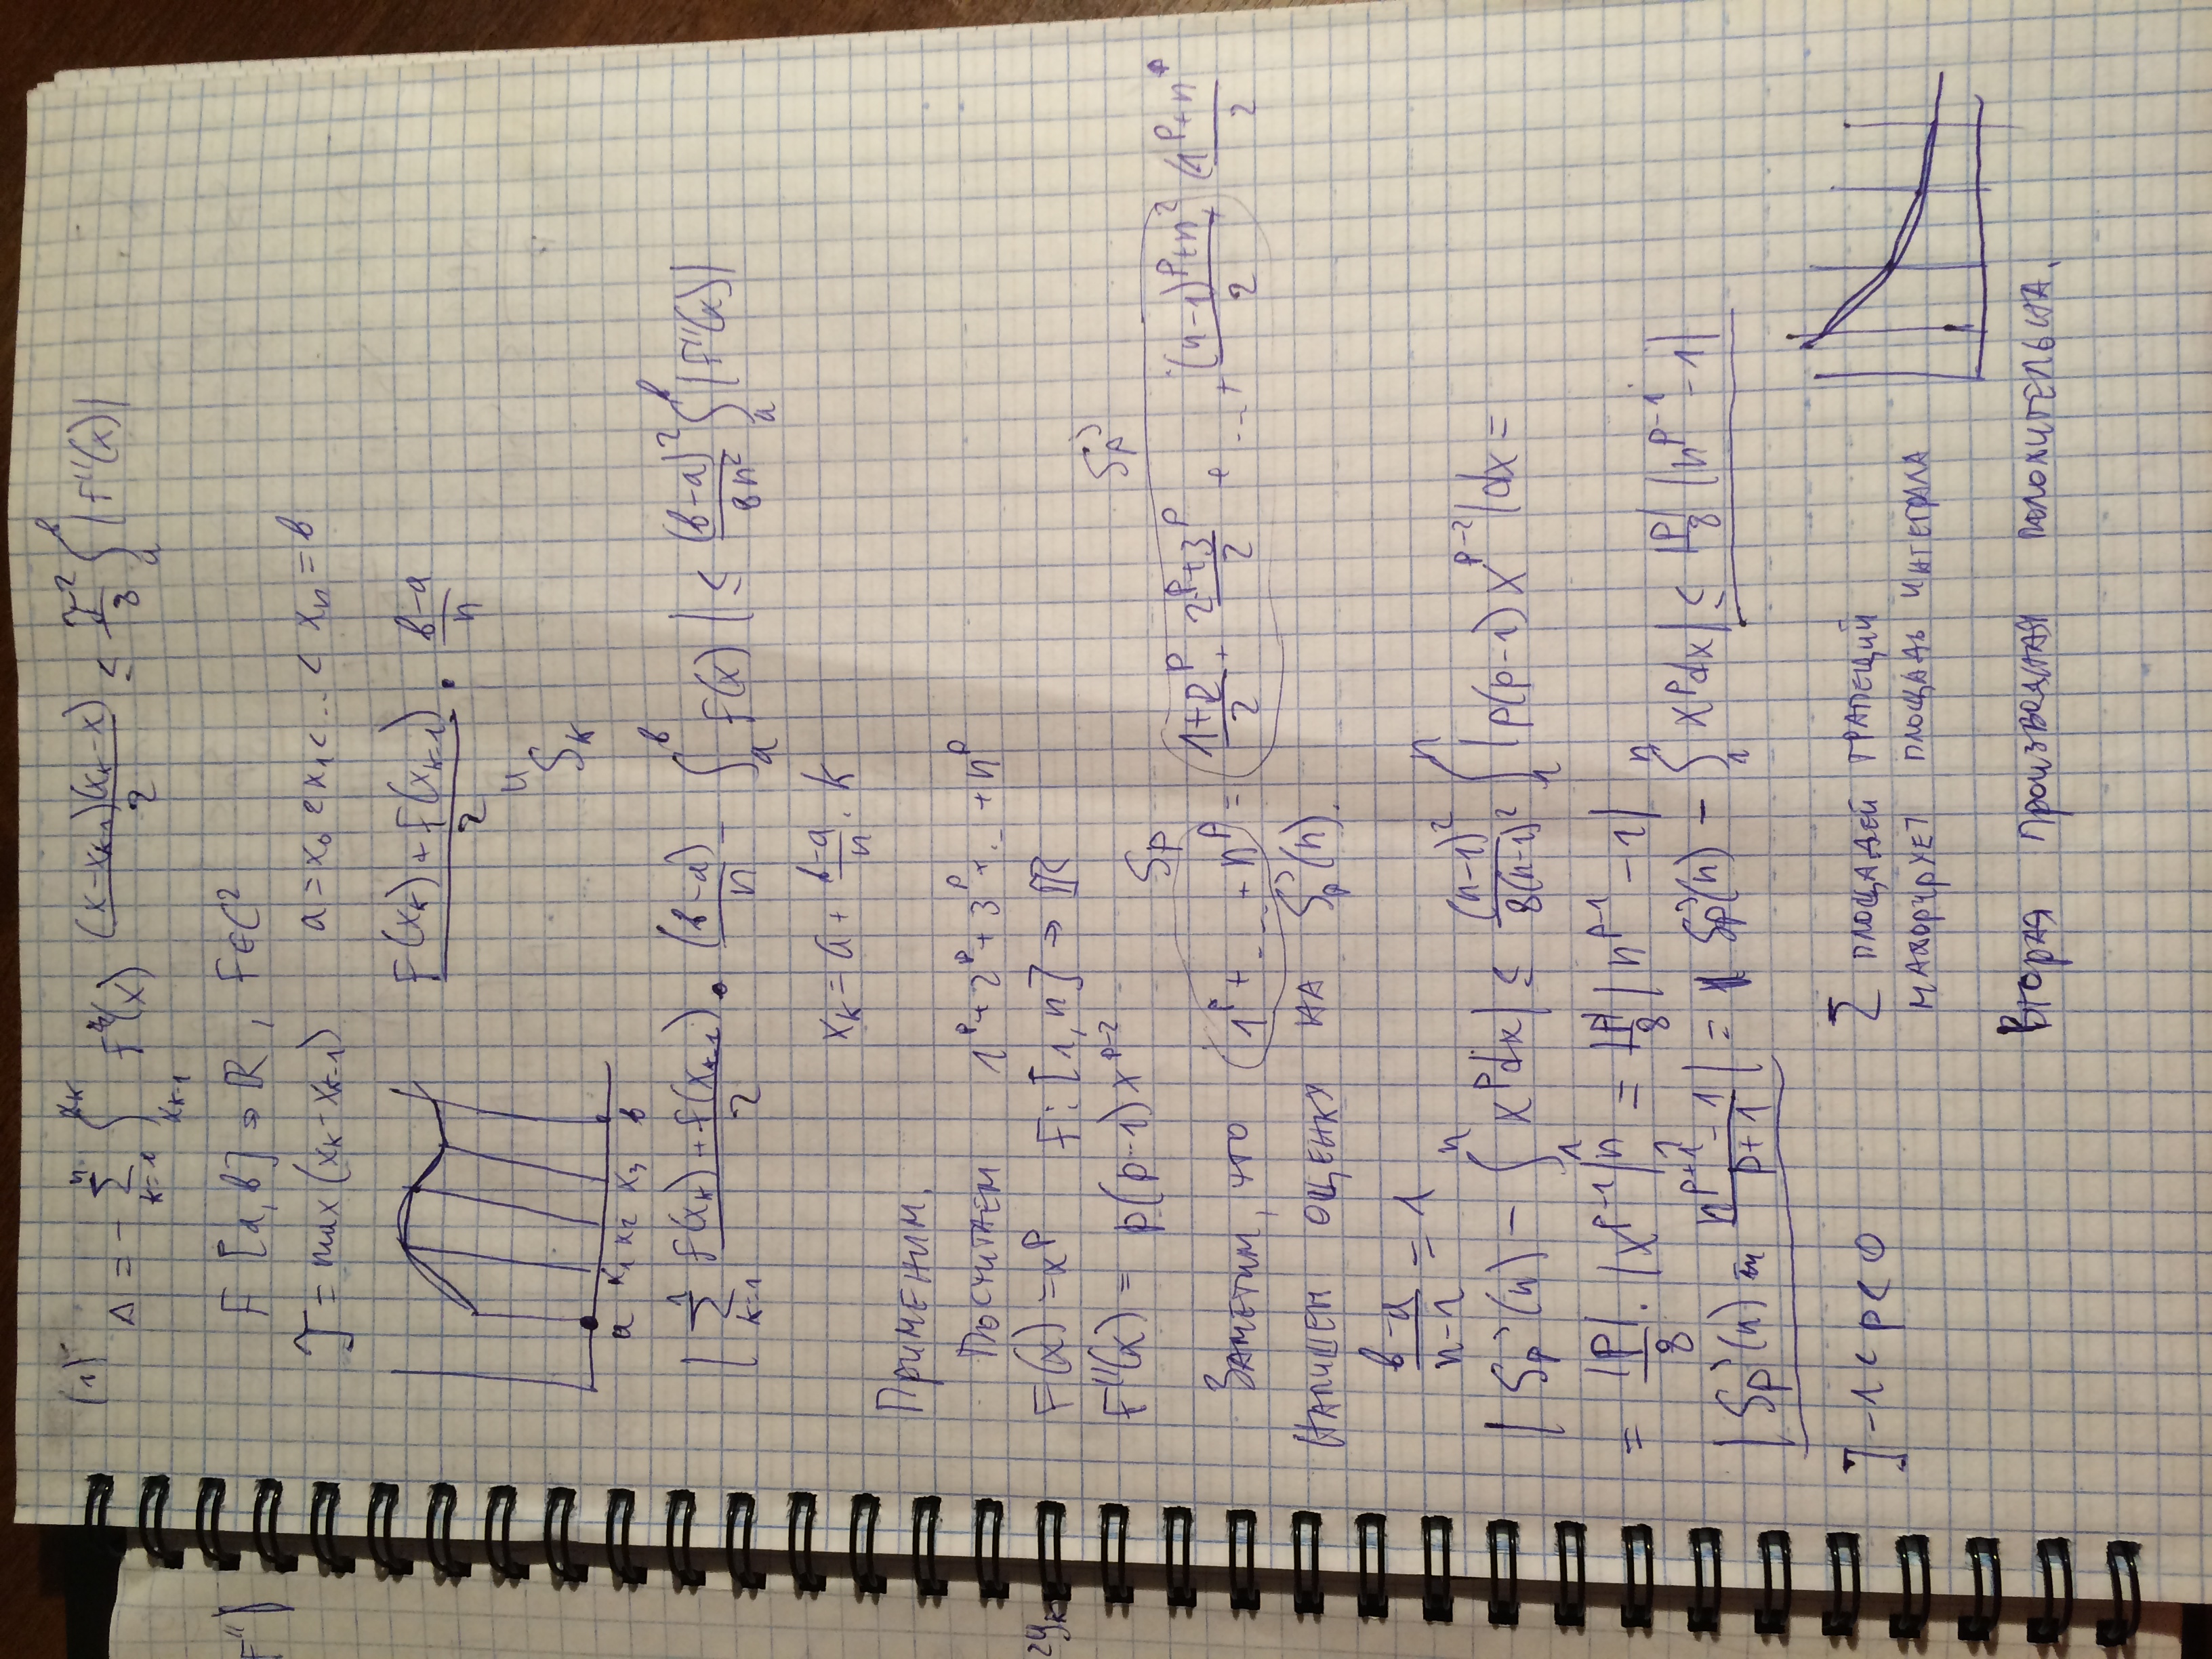 (1)
Δ = - ∑_{k=1}^{n} ∫_{x_{k-1}}^{x_k} F''(x) (x-x_{k-1})(x_k-x)/2 ≤ τ²/8 ∫_a^b |F''(x)|
F [a,b] → ℝ , F∈C²
τ = max(x_k-x_{k-1}) a = x₀ < x₁ < ... < x_n = b
(F(x_k) + F(x_{k-1}))/2 · (b-a)/n
S_k
a x₁ x₂ x₃ b
| ∑_{k=1} (f(x_k) + f(x_{k-1}))/2 · (b-a)/n - ∫_a^b F(x) | ≤ (b-a)²/8n² ∫_a^b |F''(x)|
x_k = a + (b-a)/n · k
Применим.
Посчитаем 1^p + 2^p + 3^p + ... + n^p
F(x) = x^p F: [1,n] → ℝ
F''(x) = p(p-1)x^{p-2}
S_p S̃_p
Заметим, что 1^p + ... + n^p = (1+2^p)/2 + (2^p+3^p)/2 + ... + ((n-1)^p+n^2)/2 (1^p+n^p)/2
Напишем оценку на S̃_p(n).
(b-a)/(n-1) = 1
| S̃_p(n) - ∫_1^n x^p dx | ≤ (n-1)²/8(n-1)² ∫_1^n |p(p-1) x^{p-2}| dx =
= |p|/8 · |x^{p-1}|_1^n = |p|/8 |n^{p-1} - 1|
| S̃_p(n) - (n^{p+1} - 1)/(p+1) | = | S̃_p(n) - ∫_1^n x^p dx | ≤ |p|/8 |n^{p-1} - 1|
] -1 < p < 0 Σ площадей трапеций
мажорирует площадь интеграла
Вторая производная положительна.